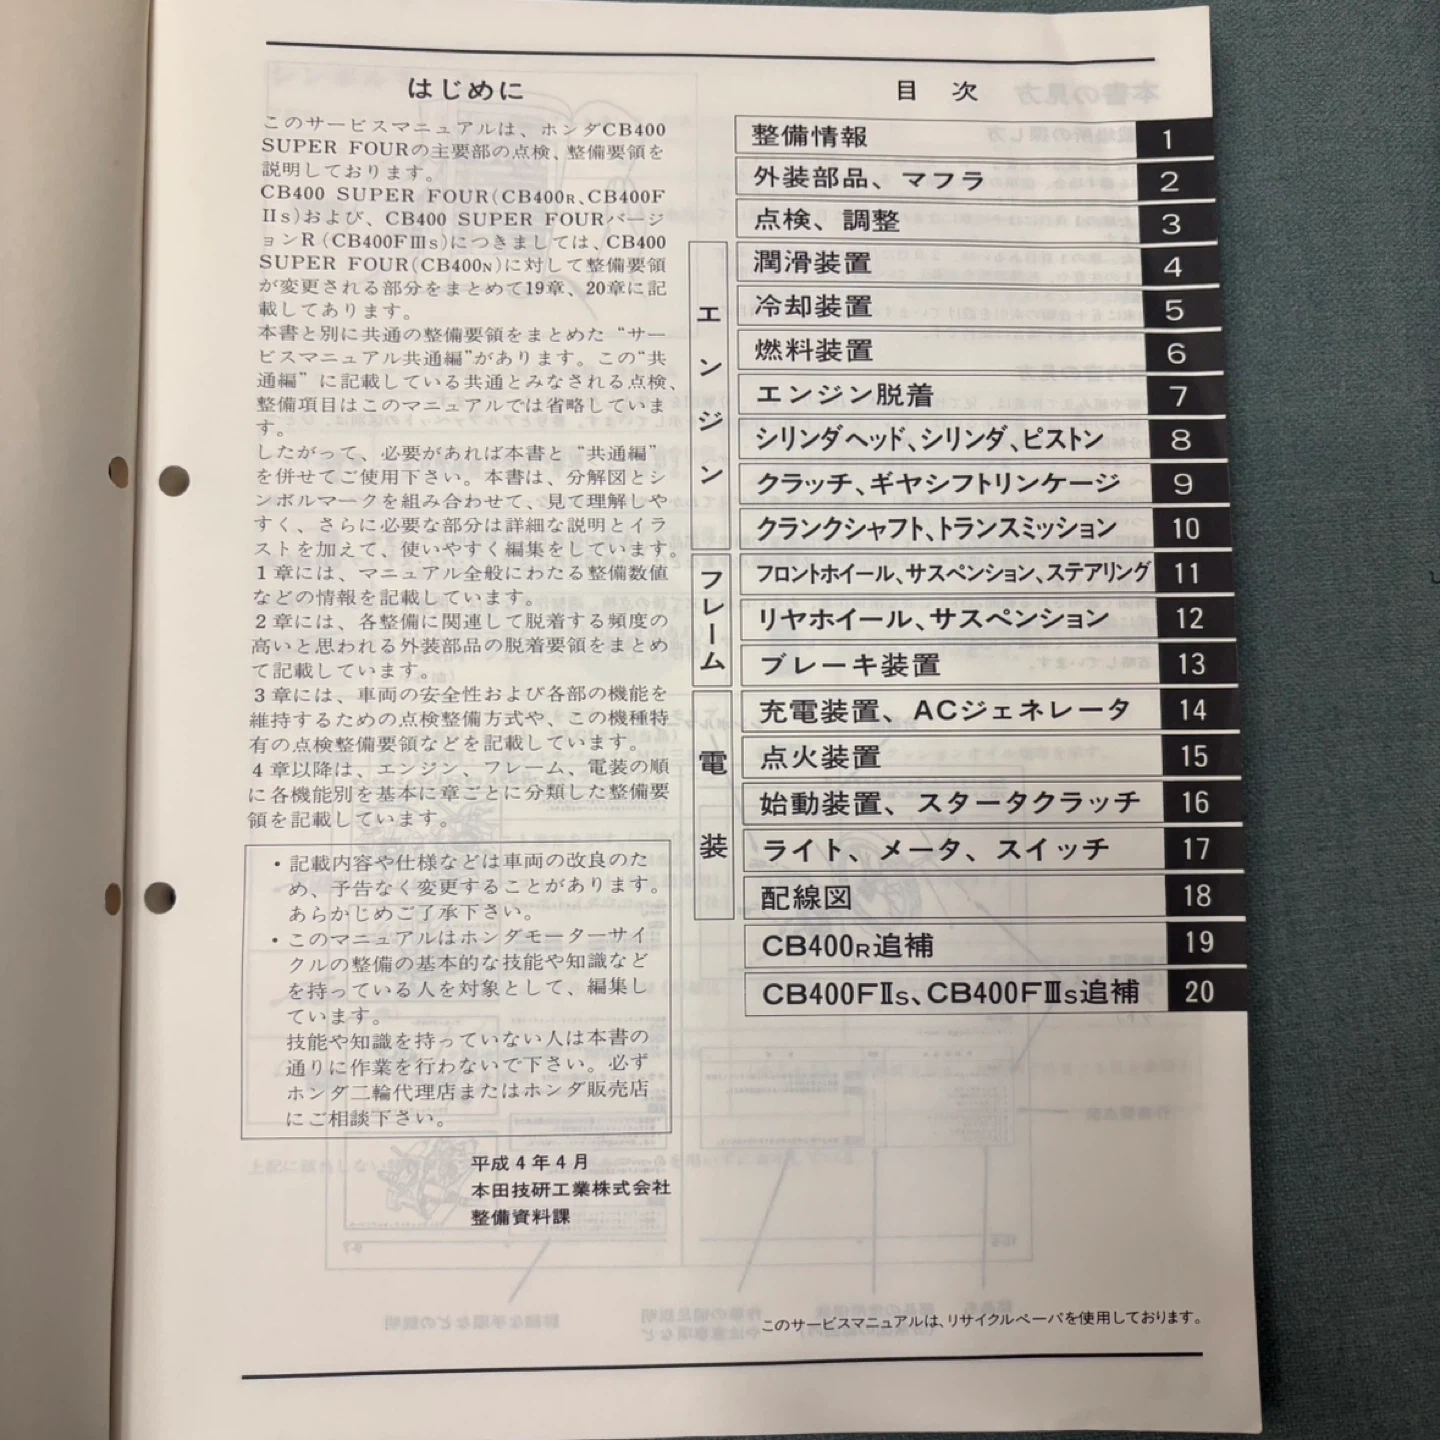 はじめに
このサービスマニュアルは、ホンダCB400
SUPER FOURの主要部の点検、整備要領を
説明しております。
CB400 SUPER FOUR(CB400R、CB400F
ⅡS)および、CB400 SUPER FOURバージ
ョンR(CB400FⅢS)につきましては、CB400
SUPER FOUR(CB400N)に対して整備要領
が変更される部分をまとめて19章、20章に記
載してあります。
本書と別に共通の整備要領をまとめた“サー
ビスマニュアル共通編”があります。この“共
通編”に記載している共通とみなされる点検、
整備項目はこのマニュアルでは省略していま
す。
したがって、必要があれば本書と“共通編”
を併せてご使用下さい。本書は、分解図とシ
ンボルマークを組み合わせて、見て理解しや
すく、さらに必要な部分は詳細な説明とイラ
ストを加えて、使いやすく編集をしています。
1章には、マニュアル全般にわたる整備数値
などの情報を記載しています。
2章には、各整備に関連して脱着する頻度の
高いと思われる外装部品の脱着要領をまとめ
て記載しています。
3章には、車両の安全性および各部の機能を
維持するための点検整備方式や、この機種特
有の点検整備要領などを記載しています。
4章以降は、エンジン、フレーム、電装の順
に各機能別を基本に章ごとに分類した整備要
領を記載しています。
・記載内容や仕様などは車両の改良のた
め、予告なく変更することがあります。
あらかじめご了承下さい。
・このマニュアルはホンダモーターサイ
クルの整備の基本的な技能や知識など
を持っている人を対象として、編集し
ています。
技能や知識を持っていない人は本書の
通りに作業を行わないで下さい。必ず
ホンダ二輪代理店またはホンダ販売店
にご相談下さい。
平成4年4月
本田技研工業株式会社
整備資料課
目次
整備情報 1
外装部品、マフラ 2
点検、調整 3
エンジン
潤滑装置 4
冷却装置 5
燃料装置 6
エンジン脱着 7
シリンダヘッド、シリンダ、ピストン 8
クラッチ、ギヤシフトリンケージ 9
クランクシャフト、トランスミッション 10
フレーム
フロントホイール、サスペンション、ステアリング 11
リヤホイール、サスペンション 12
ブレーキ装置 13
電装
充電装置、ACジェネレータ 14
点火装置 15
始動装置、スタータクラッチ 16
ライト、メータ、スイッチ 17
配線図 18
CB400R追補 19
CB400FⅡS、CB400FⅢS追補 20
このサービスマニュアルは、リサイクルペーパを使用しております。